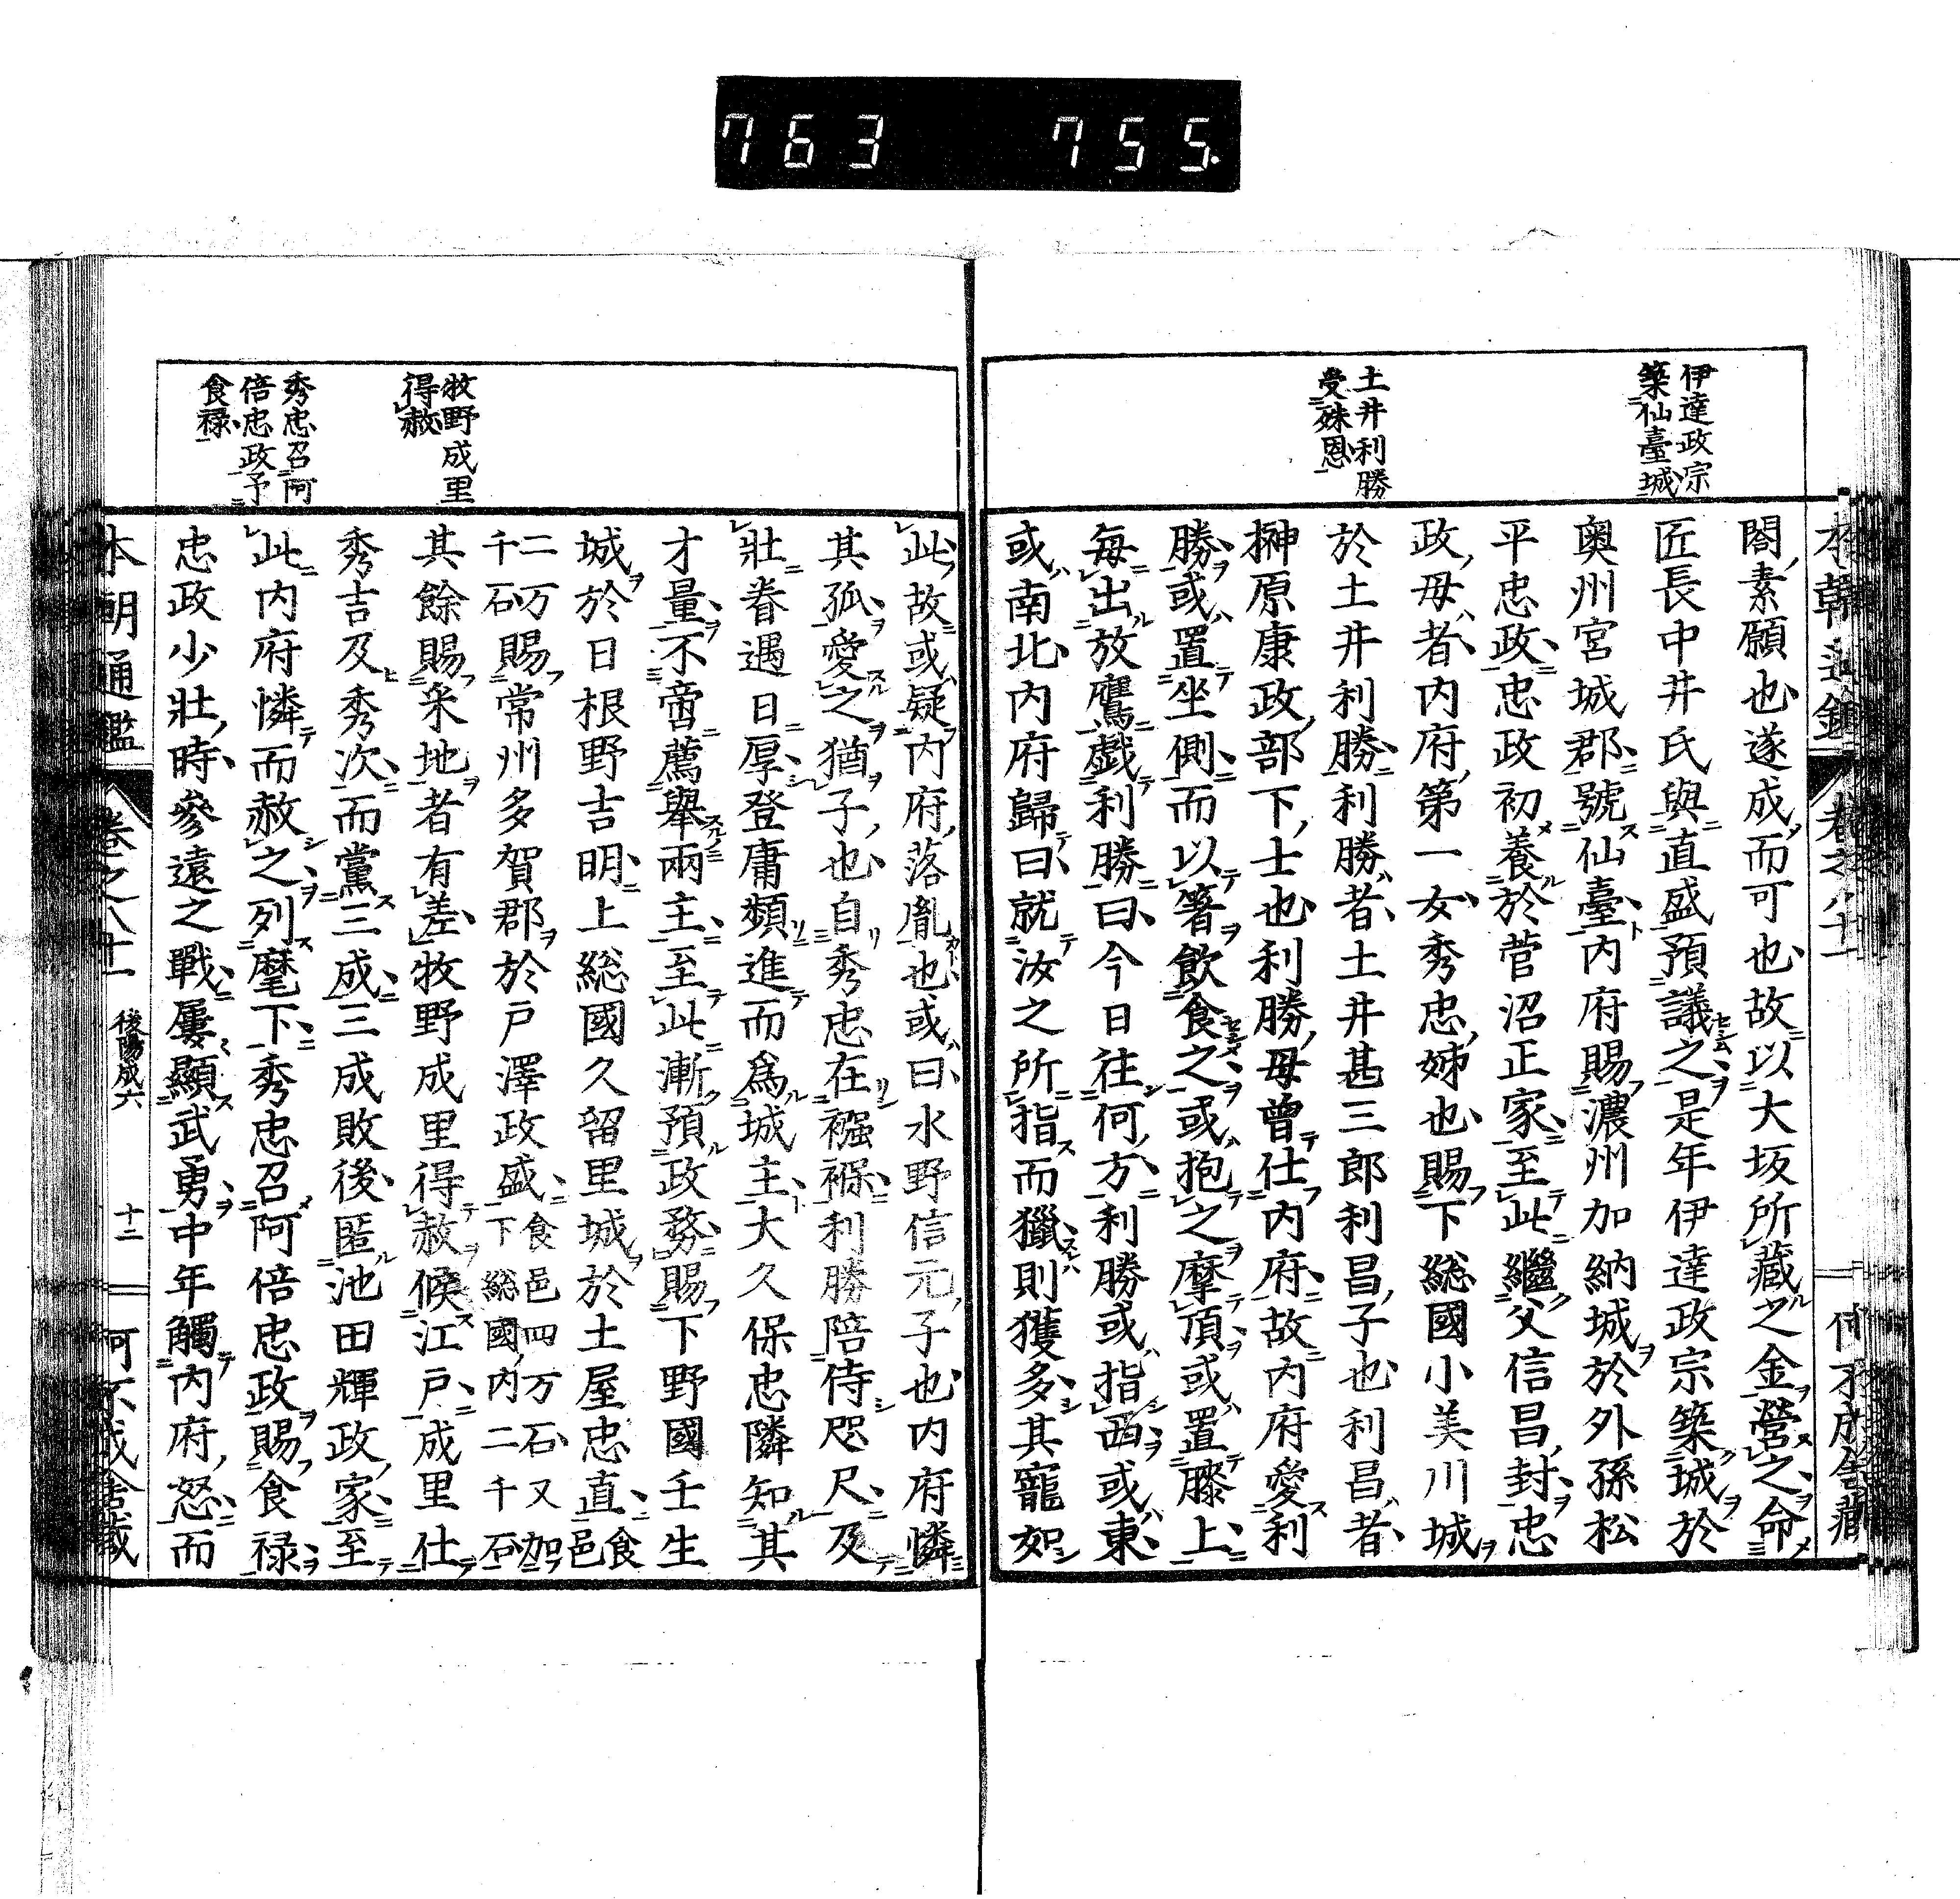 763 755
伊達政宗
築仙臺城
土井利勝
受殊恩
閤素願也遂成而可也故以大坂所藏之金營之命
匠長中井氏與直盛預議之是年伊達政宗築城於
奧州宮城郡號仙臺內府賜濃州加納城於外孫松
平忠政忠政初養於菅沼正家至此繼父信昌封忠
政母者內府第一女秀忠姊也賜下総國小美川城
於土井利勝利勝者土井甚三郎利昌子也利昌者
榊原康政部下士也利勝母曾仕內府故內府愛利
勝或置坐側而以箸飲食之或抱之摩頂或置膝上
每出放鷹戲利勝曰今日往何方利勝或指西或東
或南北內府歸曰就汝之所指而獵則獲多其寵如
牧野成里
得赦
秀忠召阿
倍忠政予
食禄
此故或疑內府落胤也或曰水野信元子也內府憐
其孤愛之猶子也自秀忠在襁褓利勝陪侍咫尺及
壯眷遇日厚登庸類進而爲城主大久保忠隣知其
才量不啻薦舉兩主至此漸預政務賜下野國壬生
城於日根野吉明上総國久留里城於土屋忠直食邑
二万千石賜常州多賀郡於戸澤政盛食邑四万石又加下総國內二千石
其餘賜采地者有差牧野成里得赦候江戸成里仕
秀吉及秀次而黨三成三成敗後匿池田輝政家至
此內府憐而赦之列麾下秀忠召阿倍忠政賜食禄
忠政少壯時參遠之戰屢顯武勇中年觸內府怒而
本朝通鑑 卷之八十一 後陽成六 十二